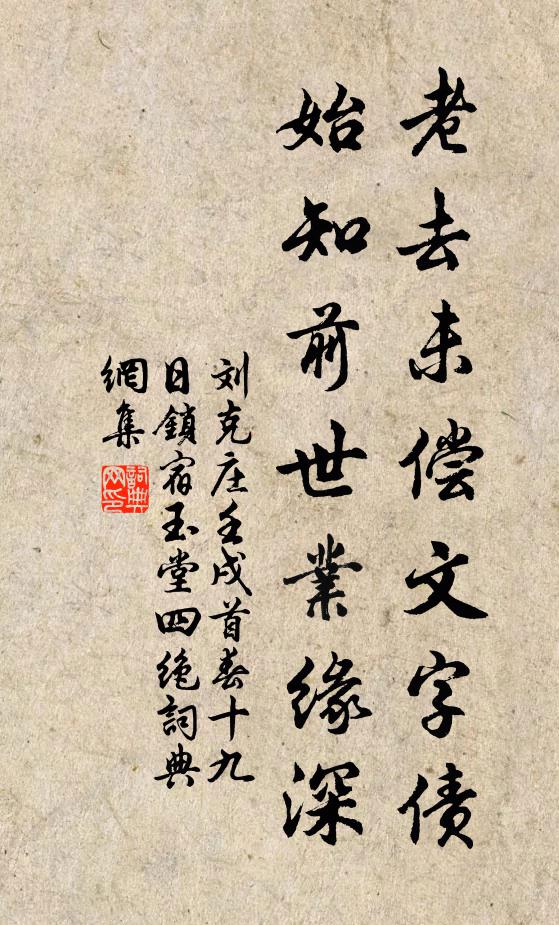 老去未偿文字债
始知前世業缘深
刘克庄壬戌首春十九
日鎖宿玉堂四绝詞典
網集
詞典
网印